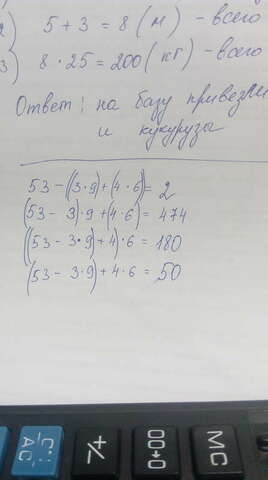 2) 5 + 3 = 8 (м) - всего
3) 8 · 25 = 200 (кг) - всего
Ответ: на базу привезли
и кукурузы
53 - ((3·9) + (4·6) = 2
(53 - 3)·9 + (4·6) = 474
((53 - 3·9) + 4)·6 = 180
(53 - 3·9) + 4·6 = 50
C·CE
AC
+/-
00→0
MC